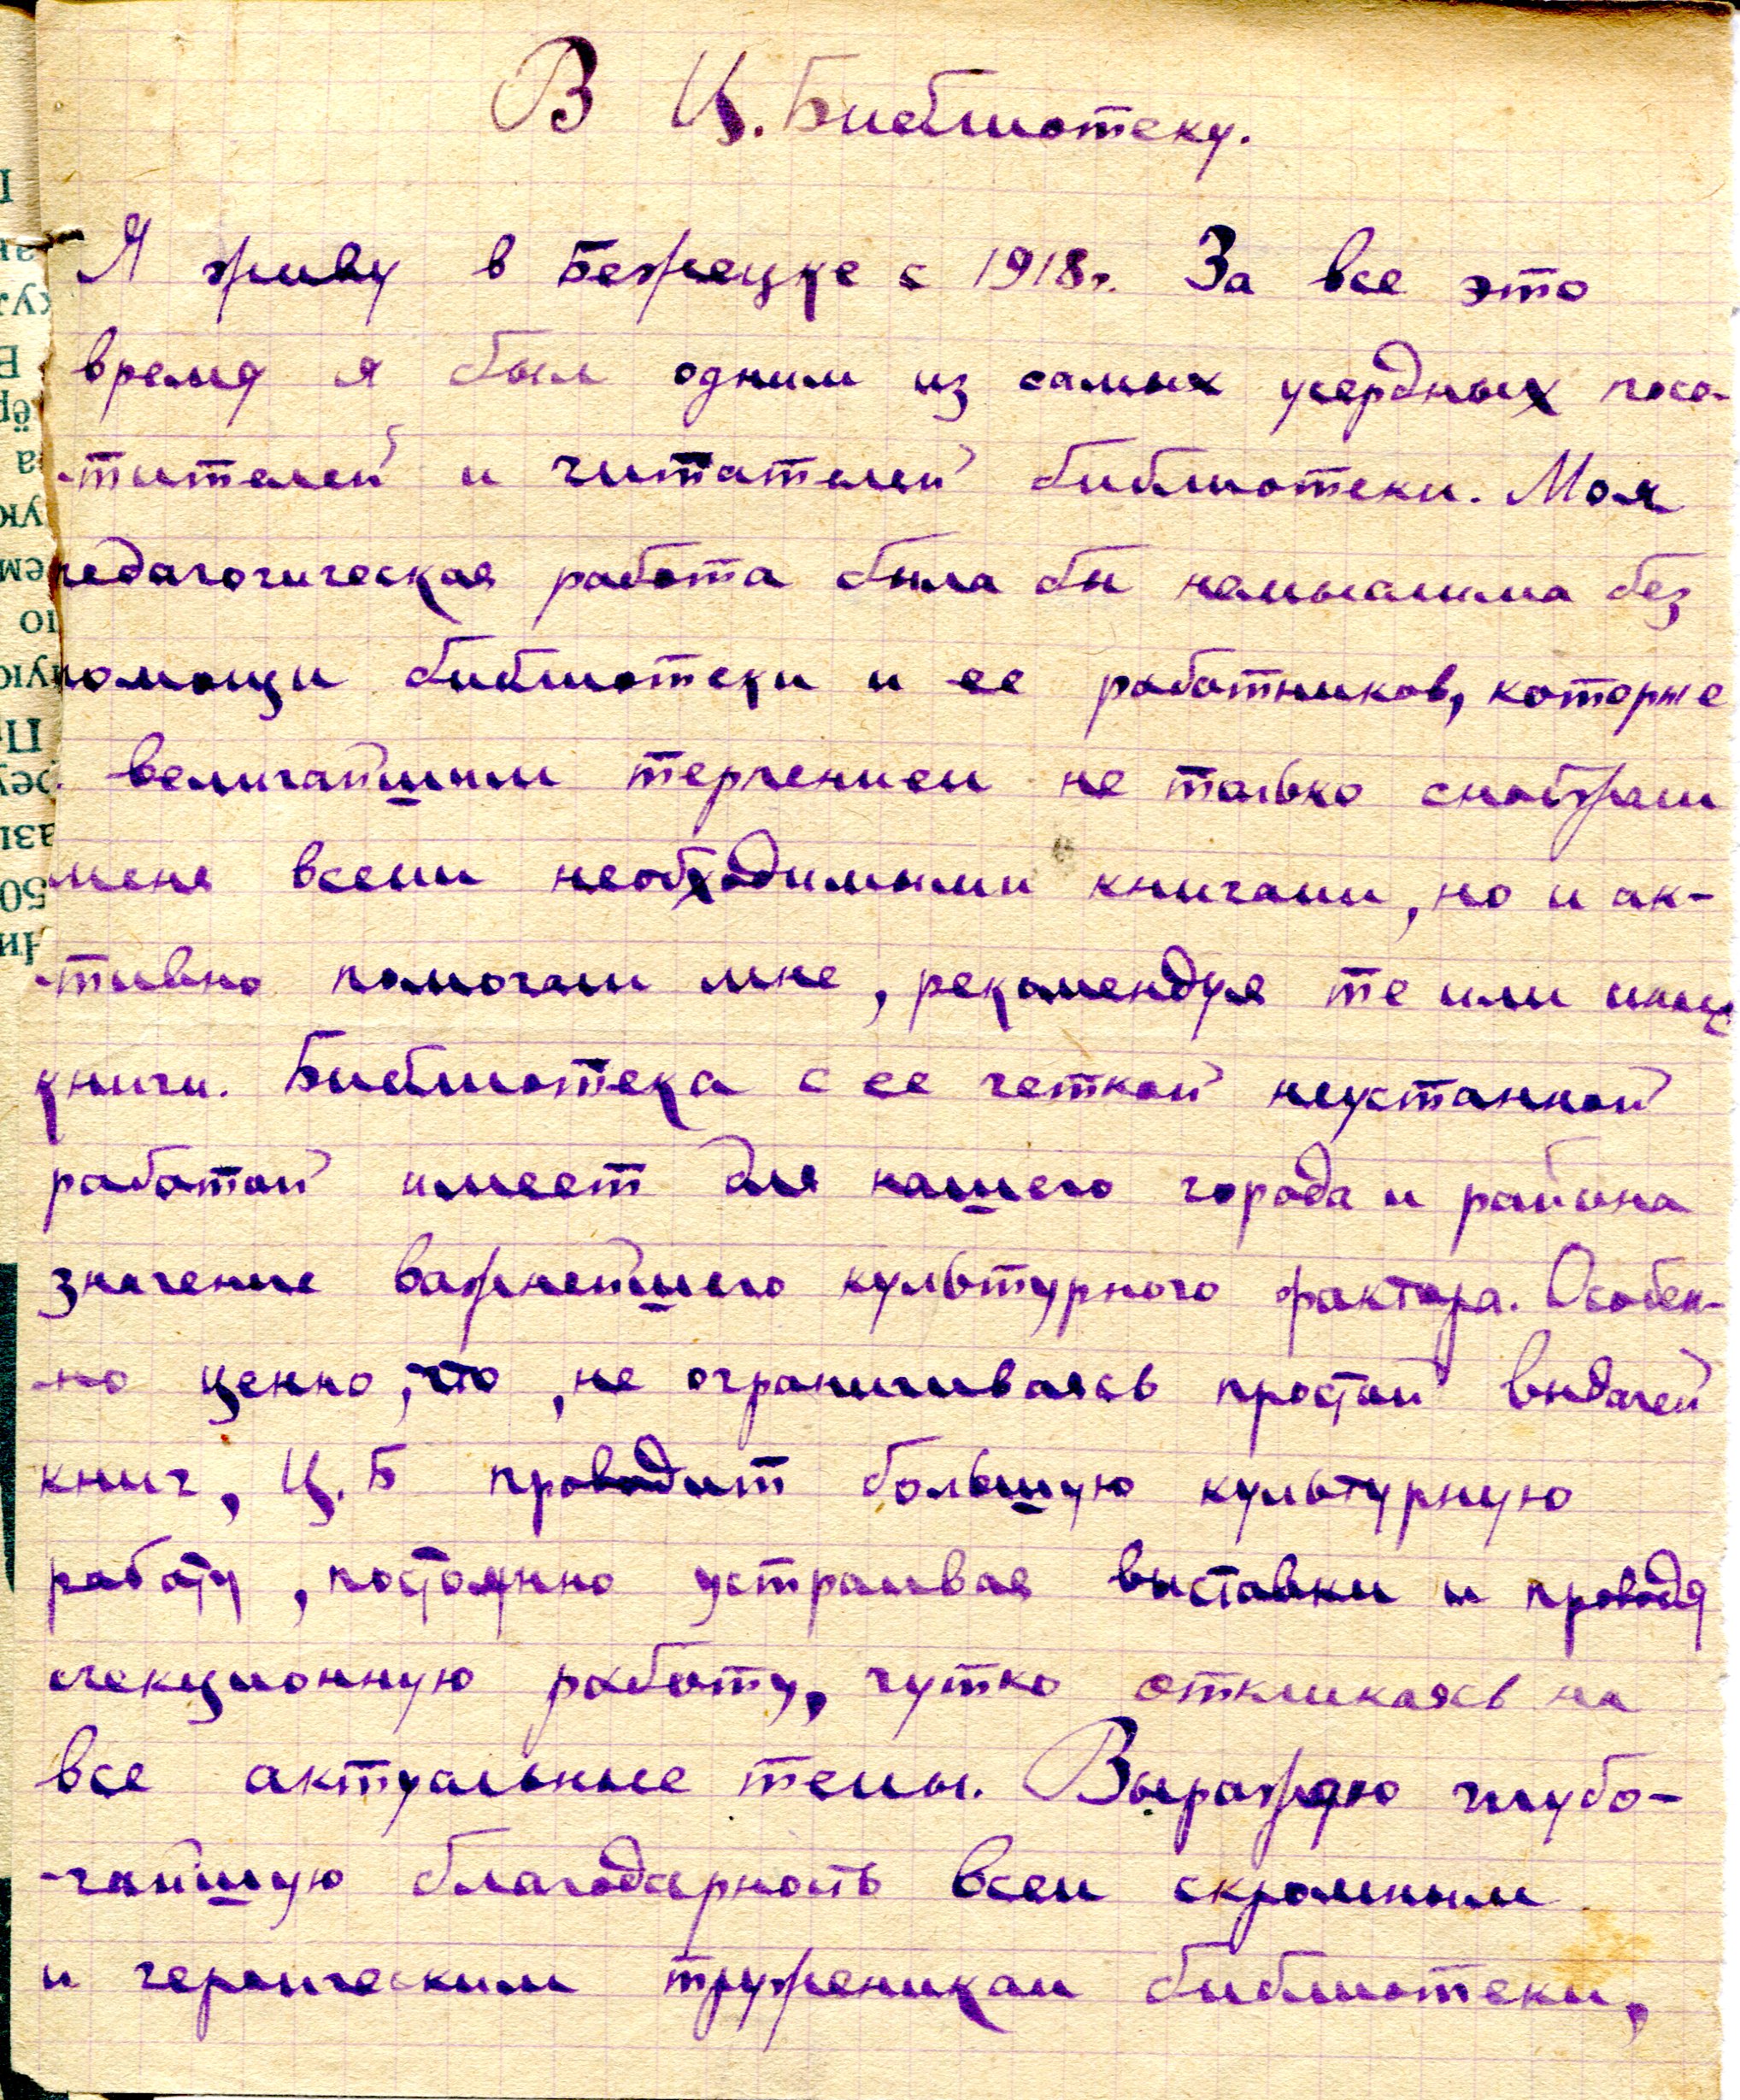 В Ц. Библиотеку.
Я живу в Бежецке с 1918 г. За все это
время я был одним из самых усердных посе-
-тителей и читателей библиотеки. Моя
педагогическая работа была бы немыслима без
помощи библиотеки и ее работников, которые
с величайшим терпением не только снабжали
меня всеми необходимыми книгами, но и ак-
-тивно помогали мне, рекомендуя те или иные
книги. Библиотека с ее четкой неустанной
работой имеет для нашего города и района
значение важнейшего культурного фактора. Особен-
-но ценно, что, не ограничиваясь простой выдачей
книг, Ц. Б проводит большую культурную
работу, постоянно устраивая выставки и проводя
лекционную работу, чутко откликаясь на
все актуальные темы. Выражаю глубо-
-чайшую благодарность всем скромным
и героическим труженикам библиотеки,